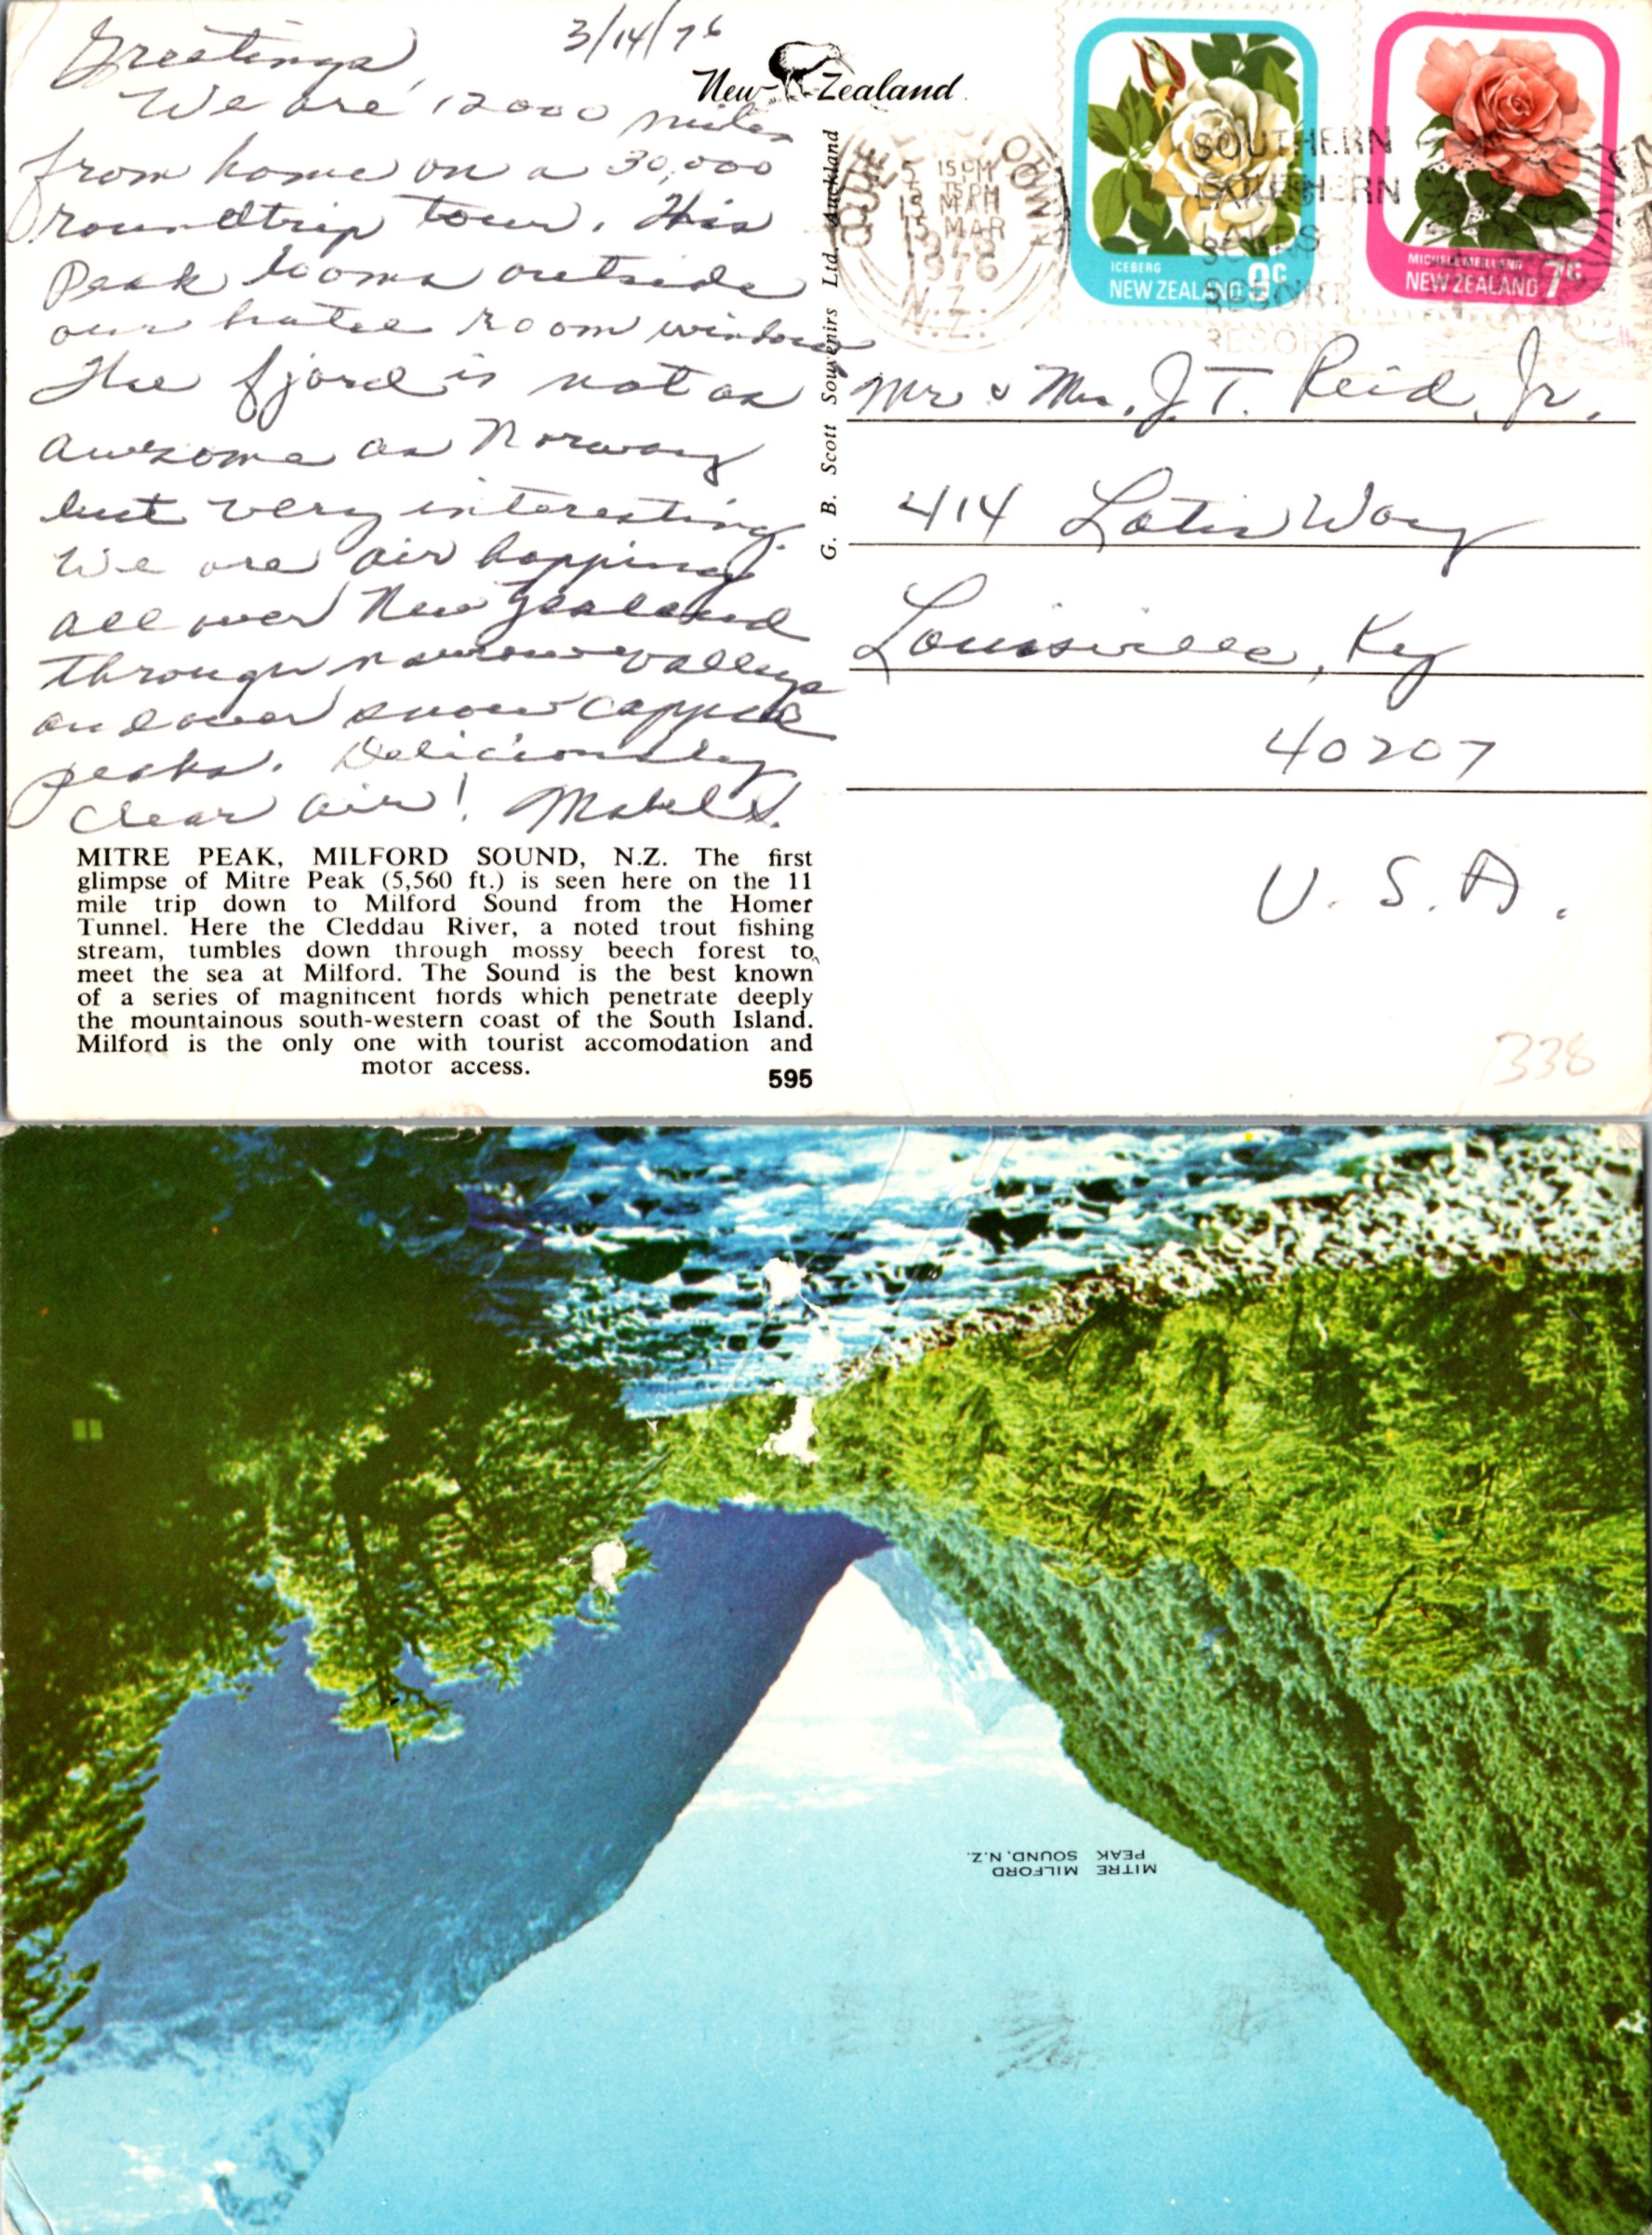 Greetings, 3/14/76
We are 12000 miles
from home on a 30,000
roundtrip tour. This
Peak looms outside
our hotel room window
The fjord is not as
awesome as Norway
but very interesting.
We are air hopping
all over New Zealand
through narrow valleys
and over snow capped
peaks. Deliciously
clear air! Mabel S.
MITRE PEAK, MILFORD SOUND, N.Z. The first
glimpse of Mitre Peak (5,560 ft.) is seen here on the 11
mile trip down to Milford Sound from the Homer
Tunnel. Here the Cleddau River, a noted trout fishing
stream, tumbles down through mossy beech forest to
meet the sea at Milford. The Sound is the best known
of a series of magnificent fiords which penetrate deeply
the mountainous south-western coast of the South Island.
Milford is the only one with tourist accomodation and
motor access.
595
New Zealand
G. B. Scott Souvenirs Ltd. Auckland
QUEENSTOWN
5 15PM
15PM
15 MAR
15 MAR
1976
1976
N.Z.
N.Z.
SOUTHERN
SOUTHERN
LAKES
LAKES
SCENIC
RESORT
RESORT
ICEBERG
NEW ZEALAND
MICHELE MEILLAND
NEW ZEALAND 7c
Mr & Mrs. J.T. Reid, Jr.
414 Lotis Way
Louisville, Ky
40207
U.S.A.
338
MITRE MILFORD
PEAK SOUND, N.Z.